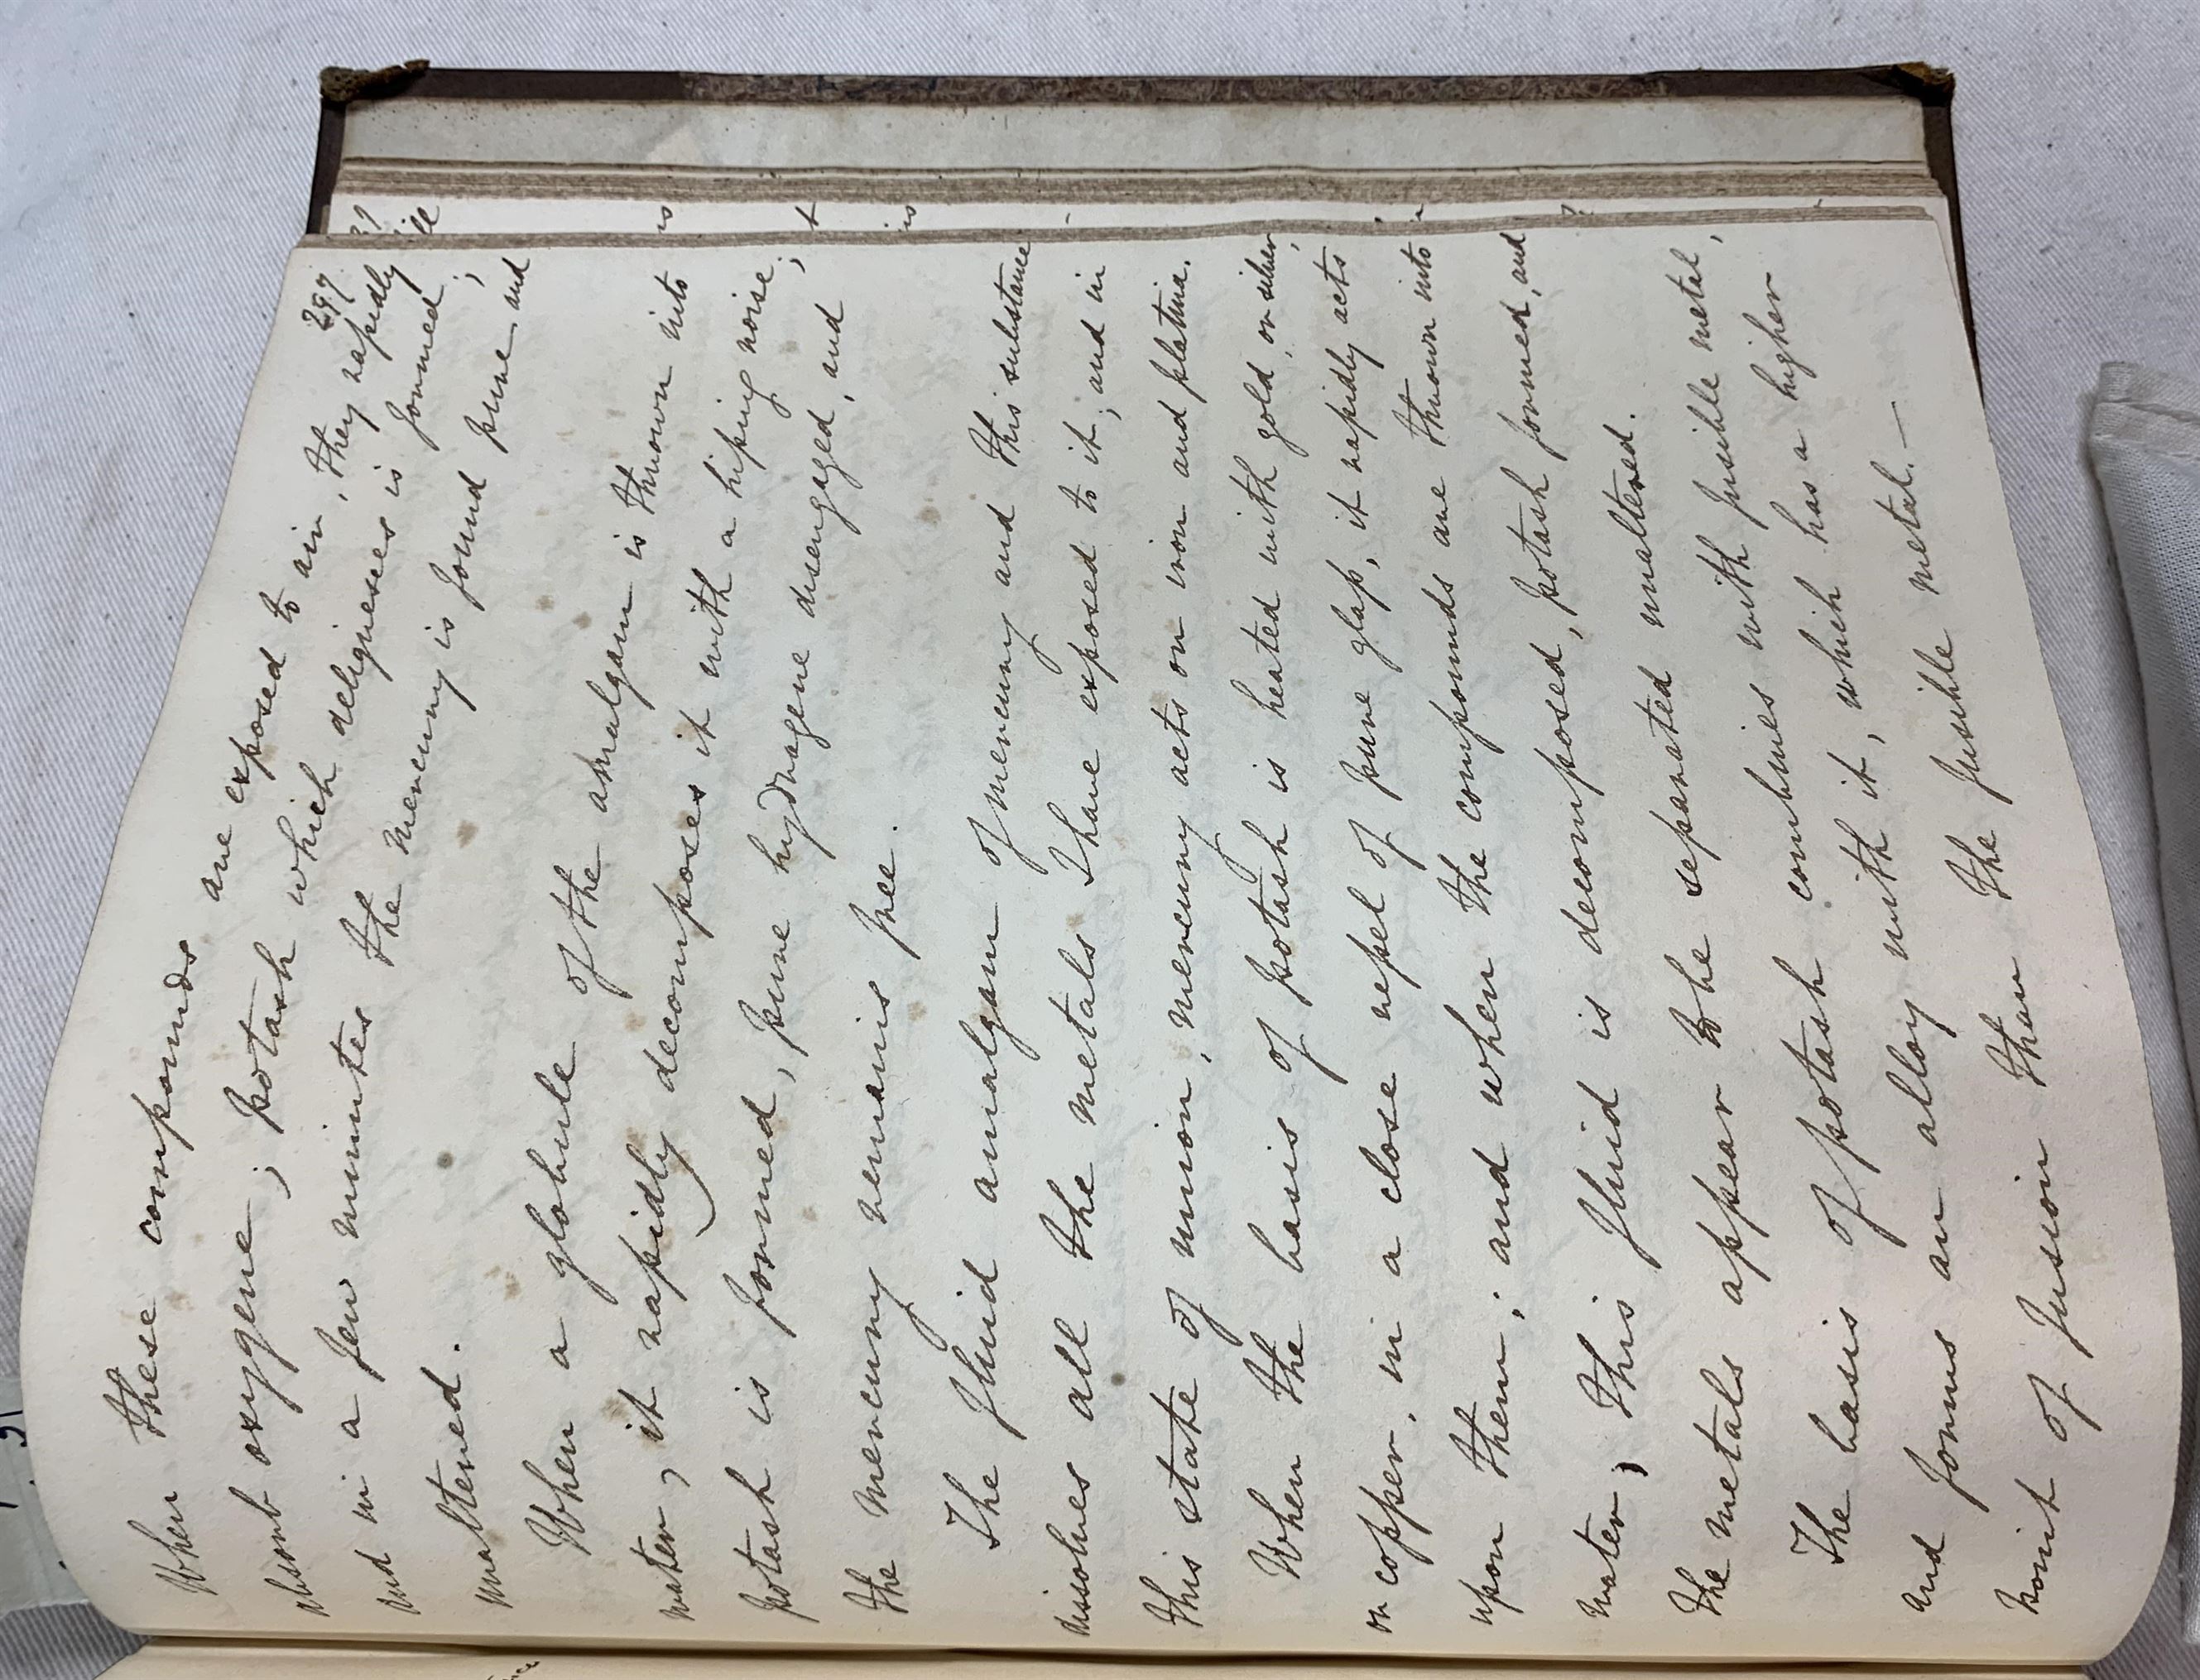 297.
When these compounds are exposed to air, they rapidly
absorb oxygene; potash which deliqueses is formed;
and in a few minutes the mercury is found pure and
unaltered.
When a globule of the amalgam is thrown into
water, it rapidly decomposes it with a hiping noise;
potash is formed, pure hydrogene disengaged, and
the mercury remains free.
The fluid amalgam of mercury and this substance
dissolves all the metals I have exposed to it; and in
this state of union, mercury acts on iron and platina.
When the basis of potash is heated with gold, or silver,
or copper, in a close vepel of pure glap, it rapidly acts
upon them; and when the compounds are thrown into
water, this fluid is decomposed, potash formed, and
the metals appear to be separated unaltered.
The basis of potash combines with fusible metal,
and forms an alloy with it, which has a higher
point of fusion than the fusible metal.—